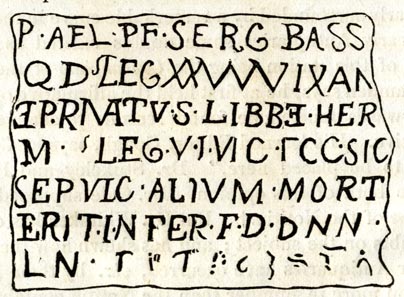 P·AEL·PF·SERG BASS
Q D LEG XXVVVIXAN
ƎP.RIVATVS·LIBBƎ·HER
M· LEG·V·I·VIC·ΓCC·SIC
SEPVLC·ALIVM·MORT
ERIT·I·N FER·F·D·D NN·
LN·T T